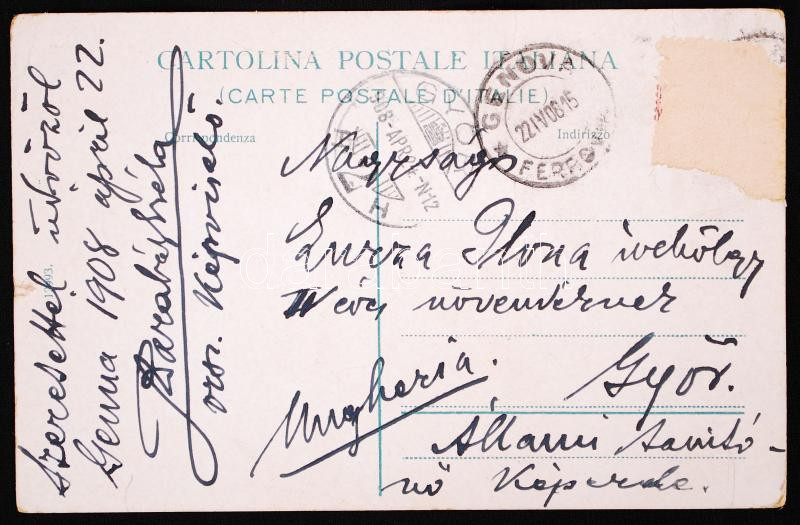 CARTOLINA POSTALE ITALIANA
(CARTE POSTALE D'ITALIE)
Corrispondenza
Indirizzo
GENOVA
22 IV 08 15
FERROVIA
GYŐR
908 APR
N 12
Szeretettel üdvözöl
Genua 1908 april 22.
Barabás Béla
orsz. képviselő.
Nagyságos
Ilona úrhölgy
IV éves növendéknek
Győr.
Ungheria.
Állami tanító-
nő Képezde.